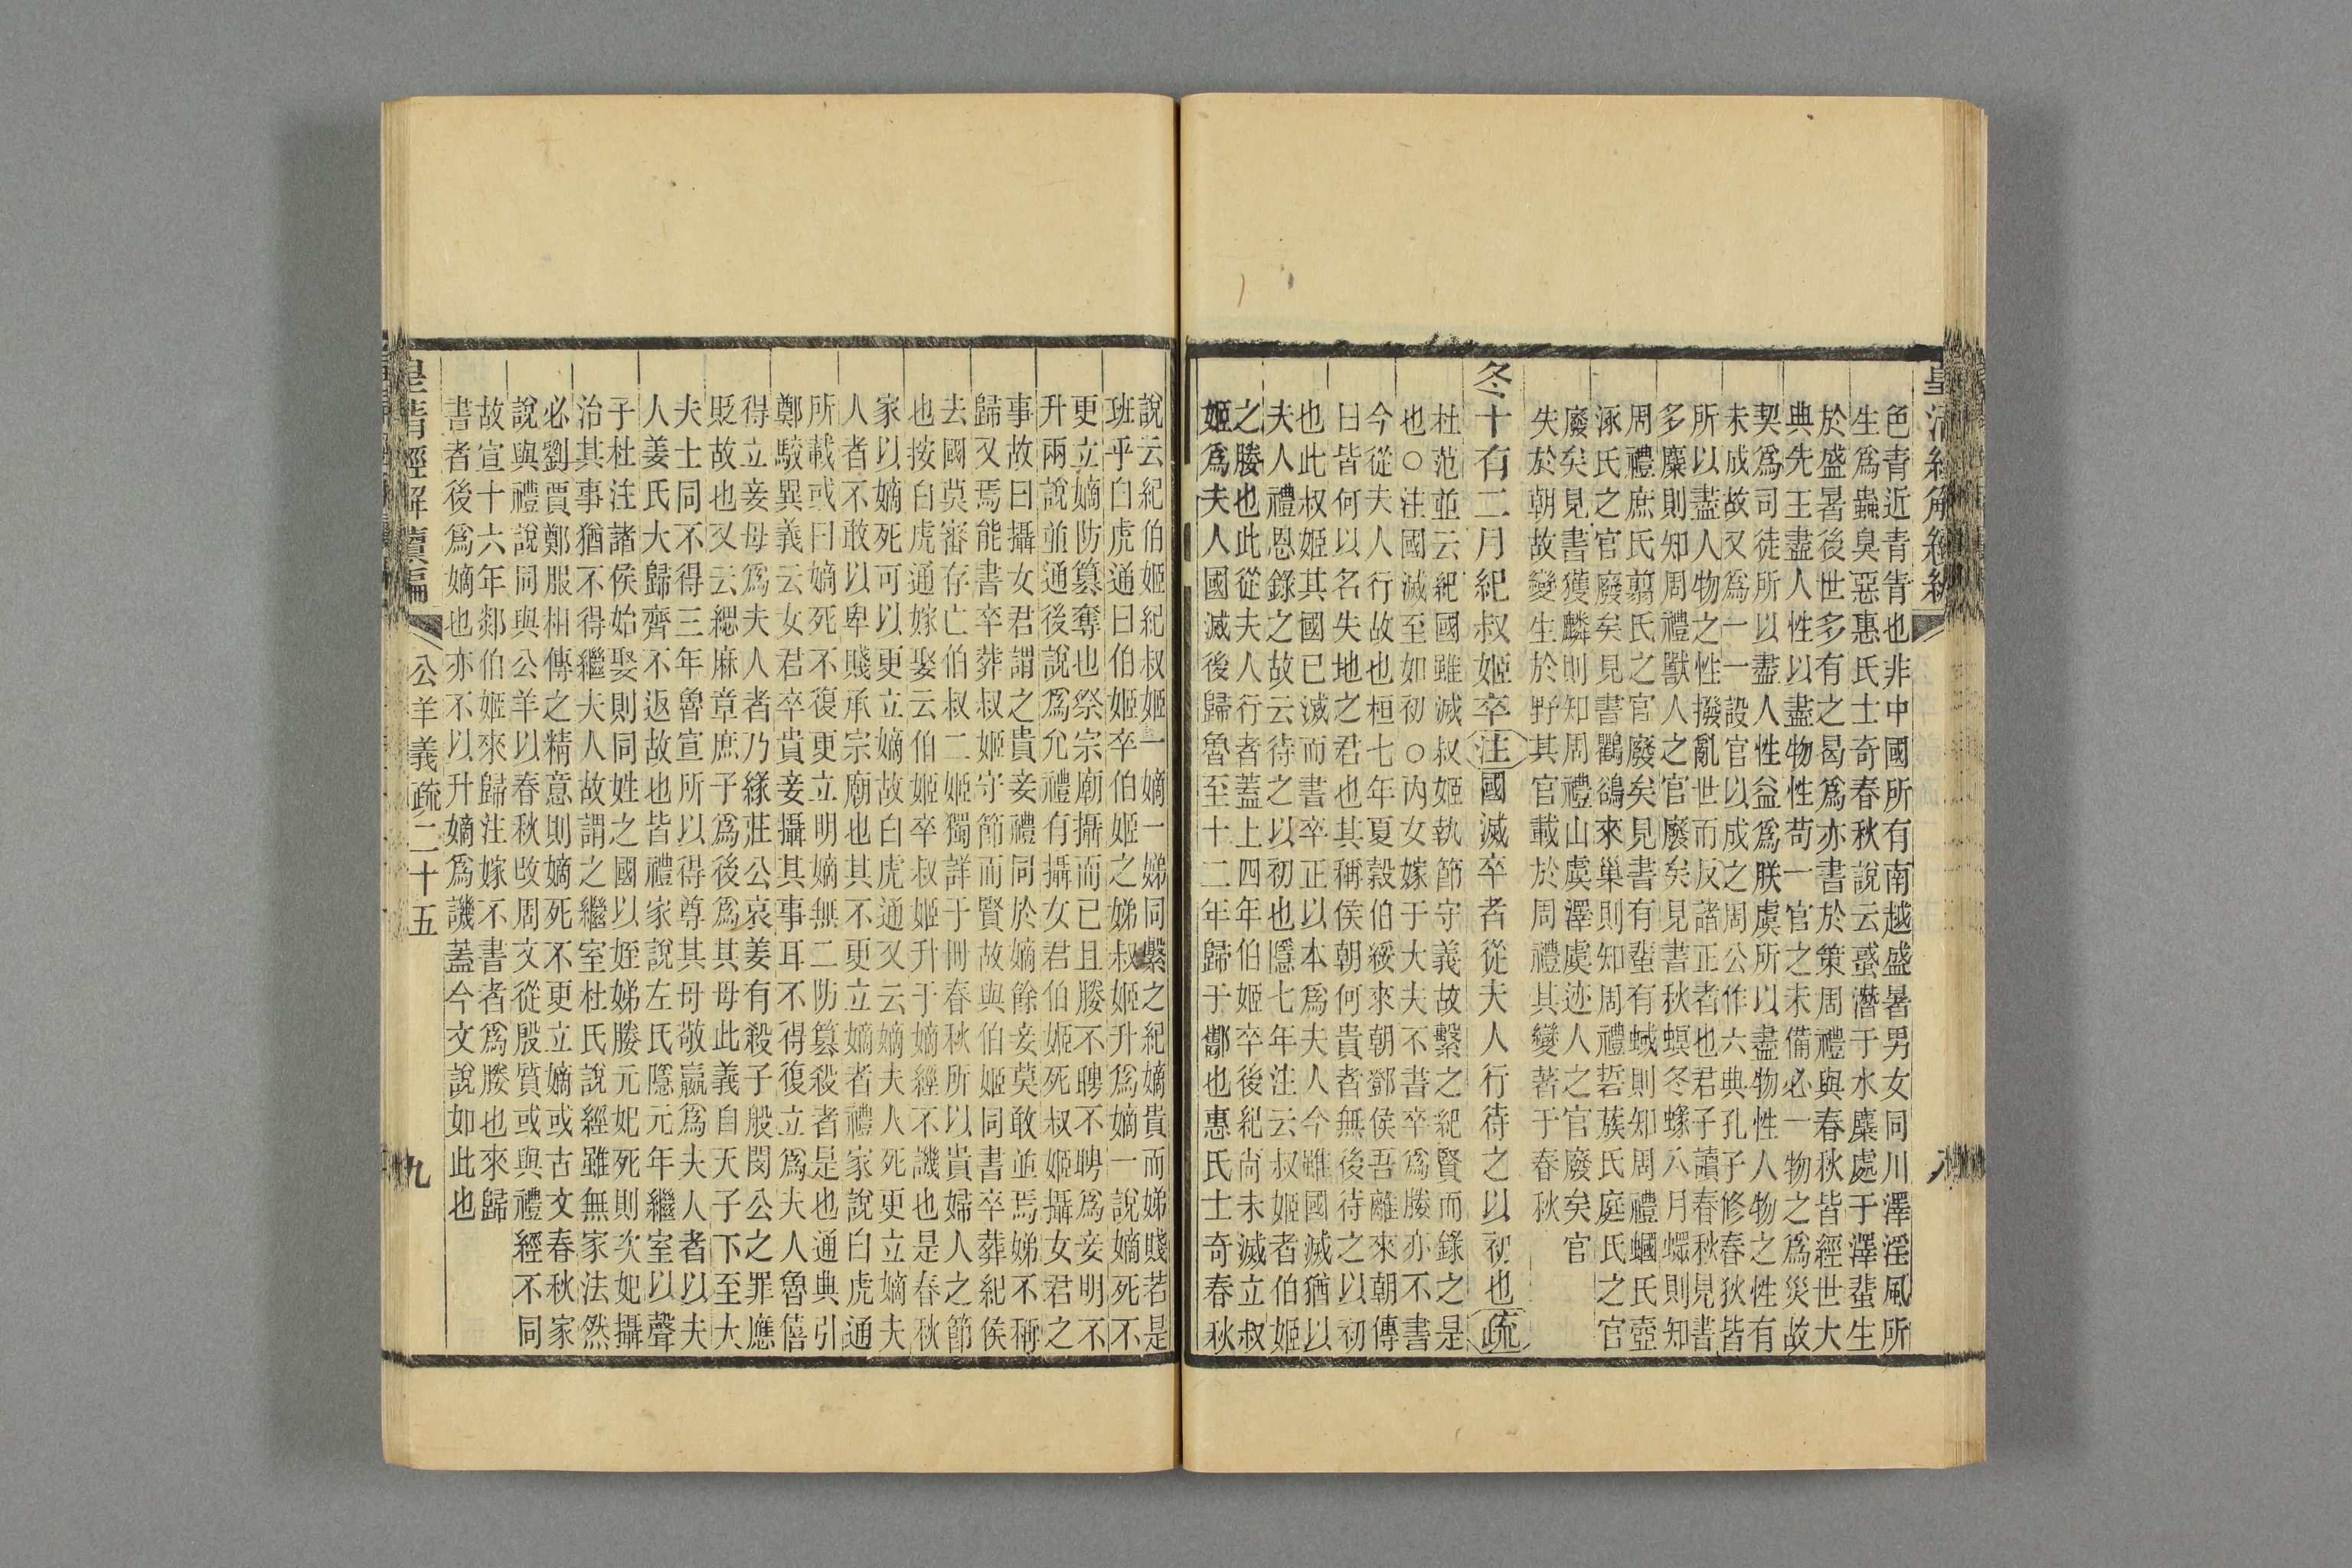 色青近青眚也非中國所有南越盛暑男女同川澤淫風所
生爲蟲臭惡惠氏士奇春秋說云蜮潛于水麋處于澤蜚生
於盛暑後世多有之曷爲亦書於策周禮與春秋皆經世大
典先王盡人性以盡物性苟一官之未備必一物之爲災故
契爲司徒所以盡人性益爲朕虞所以盡物性人物之性有
未成故又爲一一設官以成之周公作六典孔子修春秋皆
所以盡人物之性撥亂世而反諸正者也君子讀春秋見書
多麋則知周禮獸人之官廢矣見書秋螟冬螽八月螺則知
周禮庶氏翦氏之官廢矣見書有蜚有蜮則知周禮蟈氏壺
涿氏之官廢矣見書鸛鵒來巢則知周禮硩蔟氏庭氏之官
廢矣見書獲麟則知周禮山虞澤虞迹人之官廢矣官
失於朝故變生於野其官載於周禮其變著于春秋
冬十有二月紀叔姬卒注國滅卒者從夫人行待之以初也疏
杜范並云紀國雖滅叔姬執節守義故繫之紀賢而錄之是
也○注國滅至如初○內女嫁于大夫不書卒爲媵亦不書
今從夫人行故也桓七年夏穀伯綏來朝鄧侯吾離來朝傳
曰皆何以名失地之君也其稱侯朝何貴者無後待之以初
也此叔姬其國已滅而書卒正以本爲夫人今雖國滅猶以
夫人禮恩錄之故云待之以初也隱七年注云叔姬者伯姬
之媵也此從夫人行者蓋上四年伯姬卒後紀尚未滅立叔
姬爲夫人國滅後歸魯至十二年歸于酅也惠氏士奇春秋
說云紀伯姬紀叔姬一嫡一娣同繫之紀嫡貴而娣賤若是
班乎白虎通曰伯姬卒伯姬之娣叔姬升爲嫡一說嫡死不
更立嫡防篡奪也祭宗廟攝而已且媵不聘不聘爲妾明不
升兩說並通後說爲允禮有攝女君伯姬死叔姬攝女君之
事故曰攝女君謂之貴妾禮同於嫡餘妾莫敢並焉娣不稱
歸又焉能書卒葬叔姬守節而賢故與伯姬同書卒葬紀侯
去國莫審存亡伯叔二姬獨詳于冊春秋所以貴婦人之節
也按白虎通嫁娶云伯姬卒叔姬升于嫡經不譏也是春秋
家以嫡死可以更立嫡故白虎通又云嫡夫人死更立嫡夫
人者不敢以卑賤承宗廟也其不更立嫡者禮家說白虎通
所載或曰嫡死不復更立明嫡無二防篡殺者是也通典引
鄭駮異義云女君卒貴妾攝其事耳不得復立爲夫人魯僖
得立妾母爲夫人者乃緣莊公哀姜有殺子般閔公之罪應
貶故也又云緦麻章庶子爲後爲其母此義自天子下至大
夫士同不得三年魯宣所以得尊其母敬嬴爲夫人者以夫
人姜氏大歸齊不返故也皆禮家說左氏隱元年繼室以聲
子杜注諸侯始娶則同姓之國以姪娣媵元妃死則次妃攝
治其事猶不得繼夫人故謂之繼室杜氏說經雖無家法然
必劉賈鄭服相傳之精意則嫡死不更立嫡或古文春秋家
說與禮說同與公羊以春秋改周文從殷質或與禮經不同
故宣十六年郯伯姬來歸注嫁不書者爲媵也來歸
書者後爲嫡也亦不以升嫡爲譏蓋今文說如此也
皇清經解續編　公羊義疏二十五　九